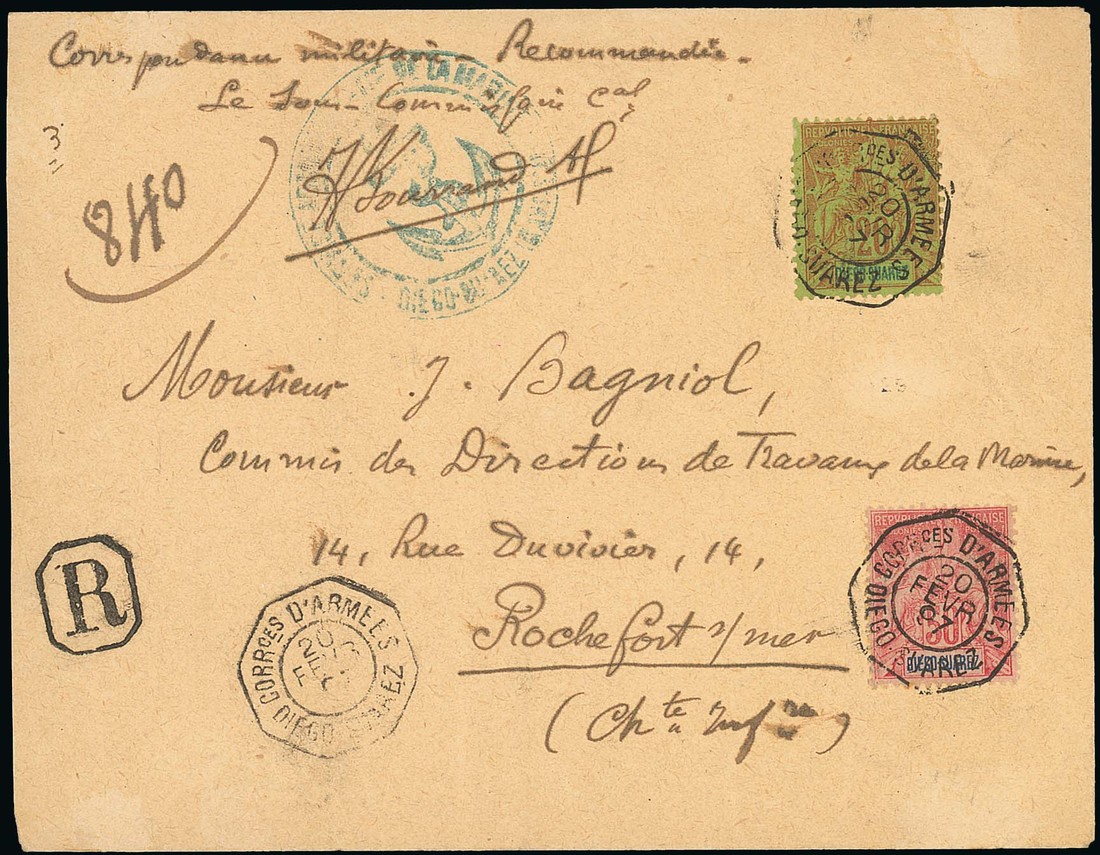 Correspondance militaire Recommandée.
Le Sous-Commissaire cal
840
DE LA MARINE
DIEGO-SUAREZ
REPUBLIQUE FRANÇAISE
COLONIES
20
DIEGO-SUAREZ
CORRCES D'ARMEES
20
FEVR
97
DIEGO SUAREZ
Monsieur J. Bagniol,
Commis des Directions de Travaux de la Marine,
14, Rue Duvivier, 14,
Rochefort s/mer
(Chte Infre)
R
CORRCES D'ARMEES
20
FEVR
97
DIEGO SUAREZ
REPUBLIQUE FRANÇAISE
COLONIES
50
DIEGO-SUAREZ
CORRCES D'ARMEES
20
FEVR
97
DIEGO SUAREZ